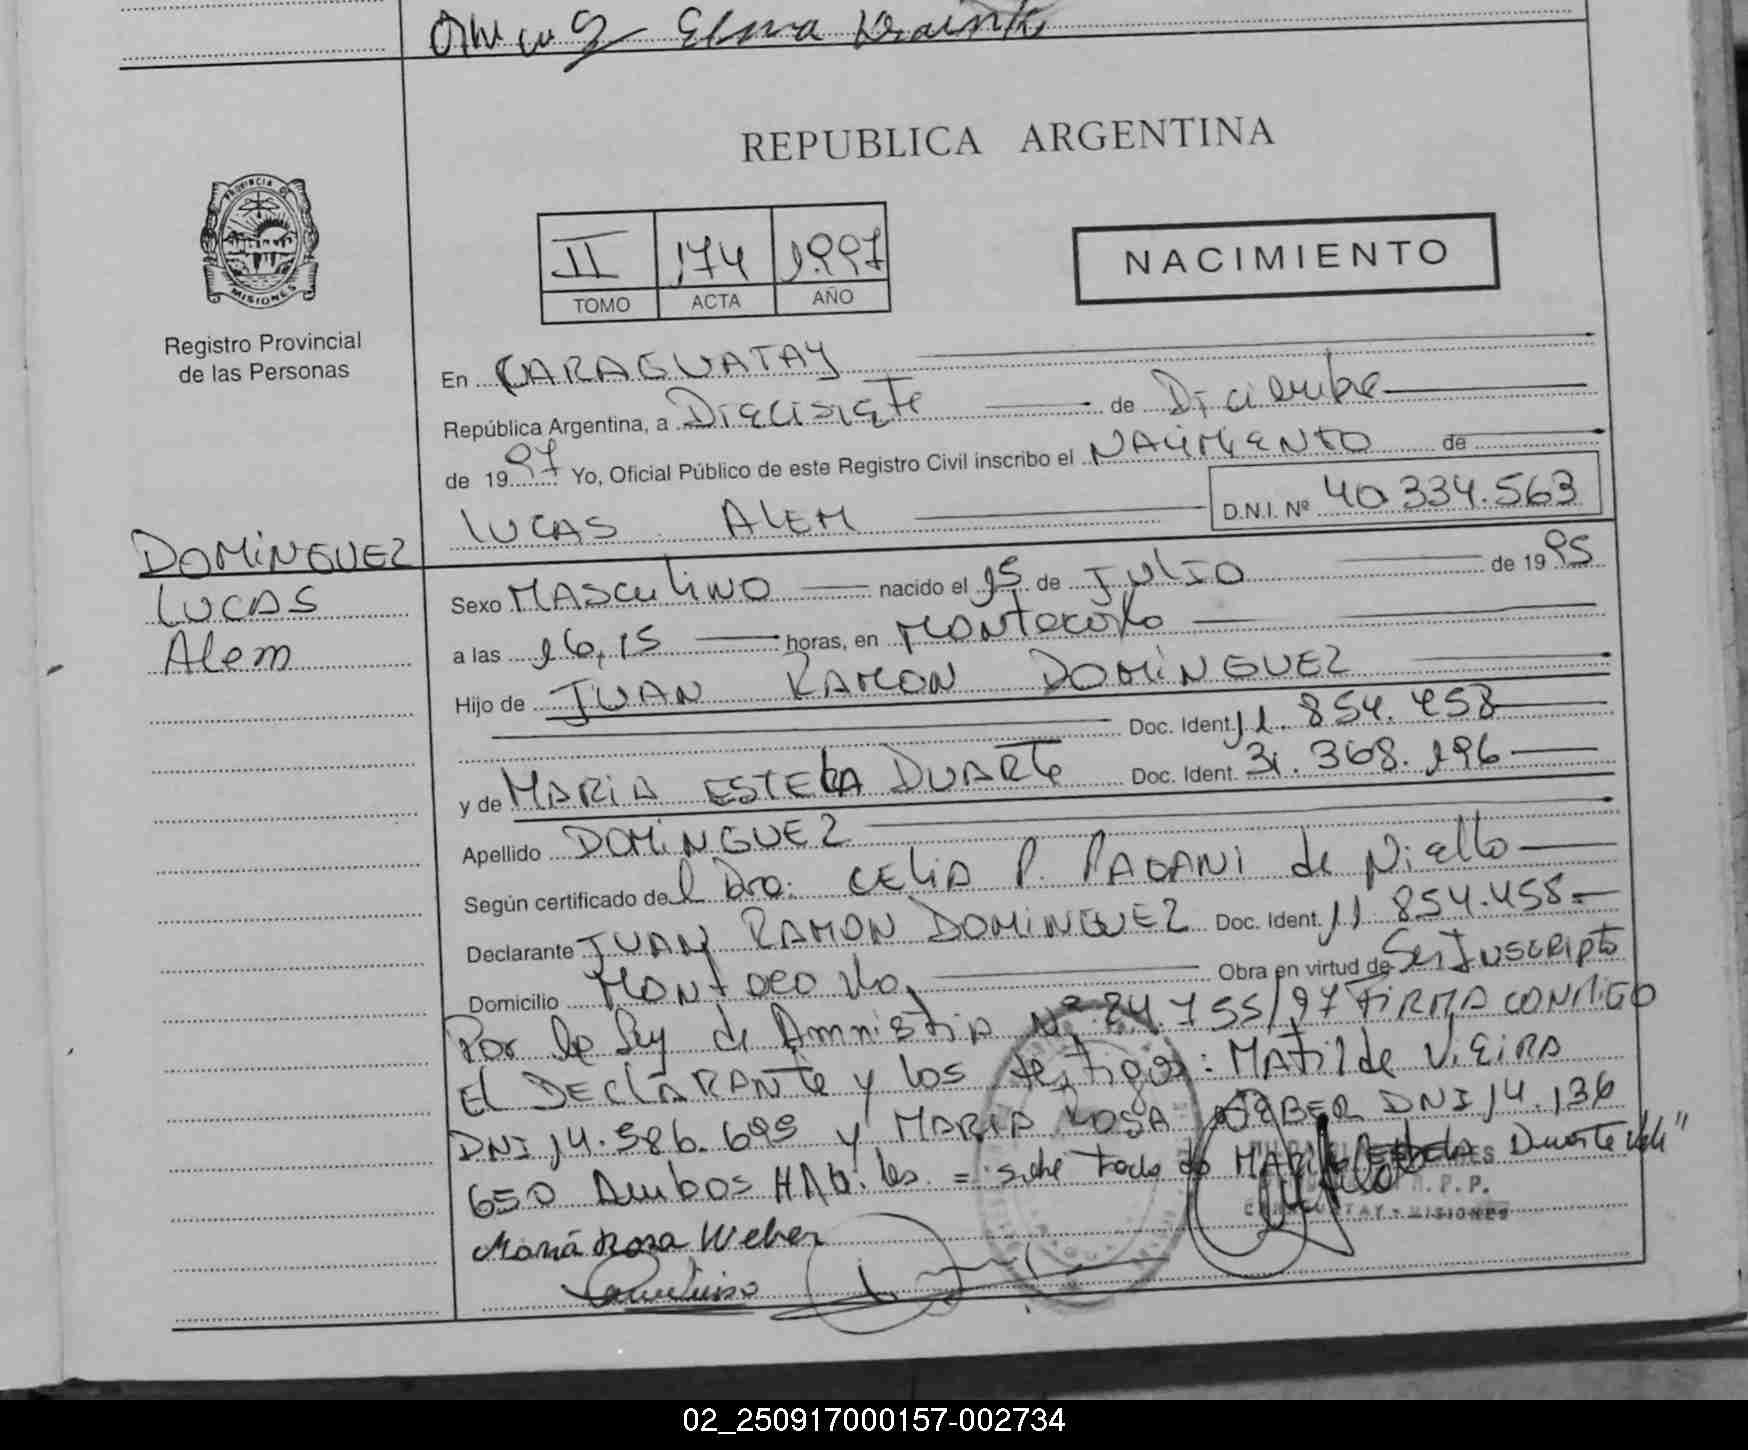 Elsua
REPUBLICA ARGENTINA
PROVINCIA DE MISIONES
II 174 1.997
TOMO ACTA AÑO
NACIMIENTO
Registro Provincial
de las Personas
En CARAGUATAY
República Argentina, a Diecisiete de Diciembre
de 1997 Yo, Oficial Público de este Registro Civil inscribo el NACIMIENTO de
LUCAS ALEM D.N.I. Nº 40.334.563
DOMINGUEZ
LUCAS
Alem
Sexo MASCULINO nacido el 15 de JULIO de 1995
a las 16,15 horas, en Montecarlo
Hijo de JUAN RAMON DOMINGUEZ
Doc. Ident. 11.854.458
y de MARIA ESTELA DUARTE Doc. Ident. 31.368.196
Apellido DOMINGUEZ
Según certificado del Dra. CELIA P. PADANI de Niello
Declarante JUAN RAMON DOMINGUEZ Doc. Ident. 11.854.458-
Domicilio Montecarlo Obra en virtud de Ser INSCRIPTO
Por la Ley de Amnistia Nº 24.755/97 FIRMA CONMIGO
El DEClARANTE y los testigos: MATilde VIEIRA
DNI 14.586.695 y MARIA ROSA WEBER DNI 14.136
650 Ambos HABiles = sobre MARIA Estela Duarte Vale"
R.P.P.
CARAGUATAY - MISIONES
María Rosa Weber
02_250917000157-002734